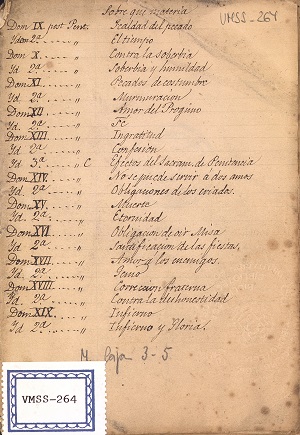 Sobre qué materia
VMSS-264
Dom IX. post Pent. Fealdad del pecado
Ydem 2ª „ El tiempo
Dom X. „ Contra la soberbia
Yd 2ª „ Soberbia y humildad
Dom XI. „ Pecados de costumbre
Yd 2ª „ Murmuracion
Dom XII „ Amor del Progimo
Yd. 2ª „ Fe
Dom XIII „ Ingratitud
Yd. 2ª „ Confesion
Yd 3ª „ C Efectos del Sacram. de Penitencia
Dom XIV. „ No se puede servir a dos amos
Yd. 2ª „ Obligaciones de los criados.
Dom XV. „ Muerte
Yd. 2ª „ Eternidad
Dom XVI „ Obligacion de oir Misa
Yd 2ª „ Santificacion de las fiestas,
Dom XVII. „ Amor a los enemigos.
Yd. 2ª „
Dom XVIII „ Correccion fraterna
Yd 2ª „ Contra la deshonestidad
Dom XIX. „ Infierno
Yd 2ª „ Infierno y Gloria.
3-5
VMSS-264